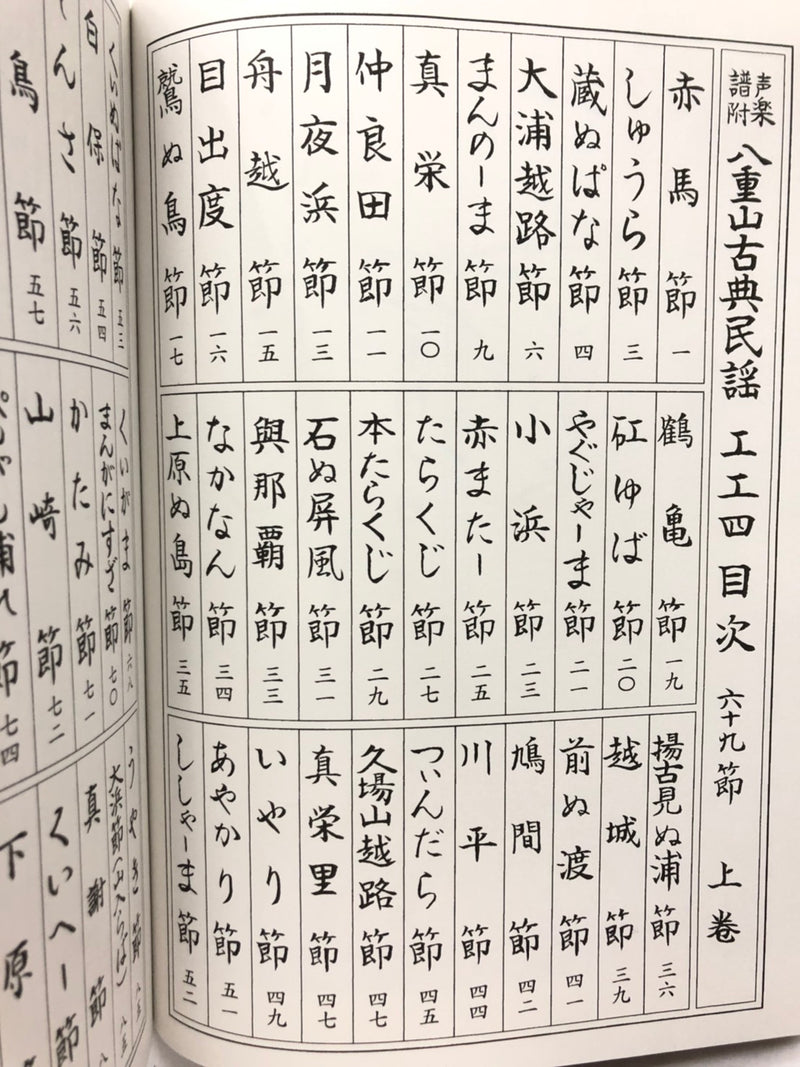 声楽譜附 八重山古典民謡 工工四 目次 六十九節 上巻
赤馬節 一
しゅうら節 三
蔵ぬぱな節 四
大浦越路節 六
まんのーま節 九
真栄節 一〇
仲良田節 一一
月夜浜節 一三
舟越節 一五
目出度節 一六
鷲ぬ鳥節 一七
鶴亀節 一九
矼ゆば節 二〇
やぐじゃーま節 二一
小浜節 二三
赤またー節 二五
たらくじ節 二七
本たらくじ節 二九
石ぬ屏風節 三一
與那覇節 三三
なかなん節 三四
上原ぬ島節 三五
揚古見ぬ浦節 三六
越城節 三九
前ぬ渡節 四一
鳩間節 四二
川平節 四四
つぃんだら節 四五
久場山越路節 四七
真栄里節 四七
いやり節 四九
あやかり節 五一
ししゃーま節 五二
くいぬぱな節 五三
白保節 五四
んさ節 五六
鳥節 五七
くいがま節 六八
まんがにすざ節 七〇
かたみ節 七一
山崎節 七二
節 七四
うやき節
大浜節
真謝節
くいへー節
下原